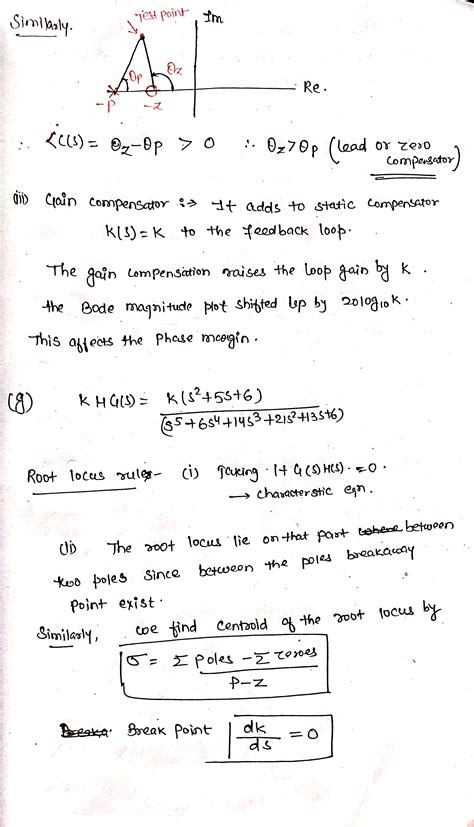 Similarly.
Test point
Im
θp
θz
-P
-Z
Re.
∴ ∠C(s) = θz-θp > 0 ∴ θz>θp (lead or zero compensator)
(iii) Gain compensator :⇒ It adds to static compensator
K(s)=K to the feedback loop.
The gain compensation raises the loop gain by K.
the Bode magnitude plot shifted up by 20log10K.
This affects the Phase margin.
(g) K H G(s) = K(s²+5s+6)
(s⁵+6s⁴+14s³+21s²+13s+6)
Root locus rules- (i) Taking 1+G(s)H(s)=0.
→ characterstic eqn.
(ii) The root locus lie on that part where between
two poles since between the poles breakaway
Point exist.
Similarly, we find centroid of the root locus by
σ = Σ poles - Σ zeroes
P-Z
Break Point dk
ds = 0